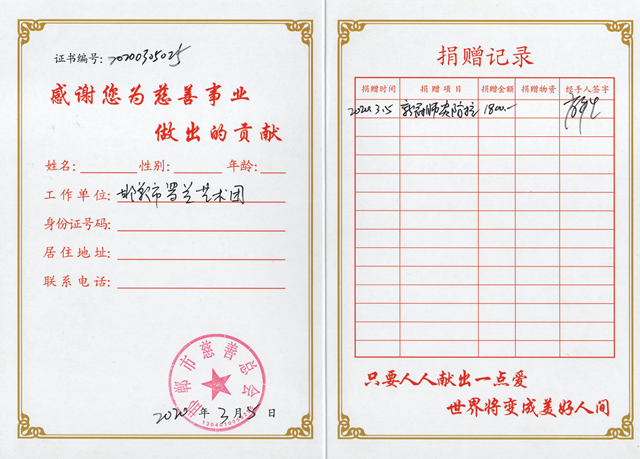 证书编号: 20200305025
感谢您为慈善事业
做出的贡献
姓名: 性别: 年龄:
工作单位: 邯郸市 兰艺术团
身份证号码:
居住地址:
联系电话:
邯郸市慈善总会
2020年3月5日
捐赠记录
捐赠时间 捐赠项目 捐赠金额 捐赠物资 经手人签字
2020.3.5 新冠肺炎防控 1800.-
只要人人献出一点爱
世界将变成美好人间